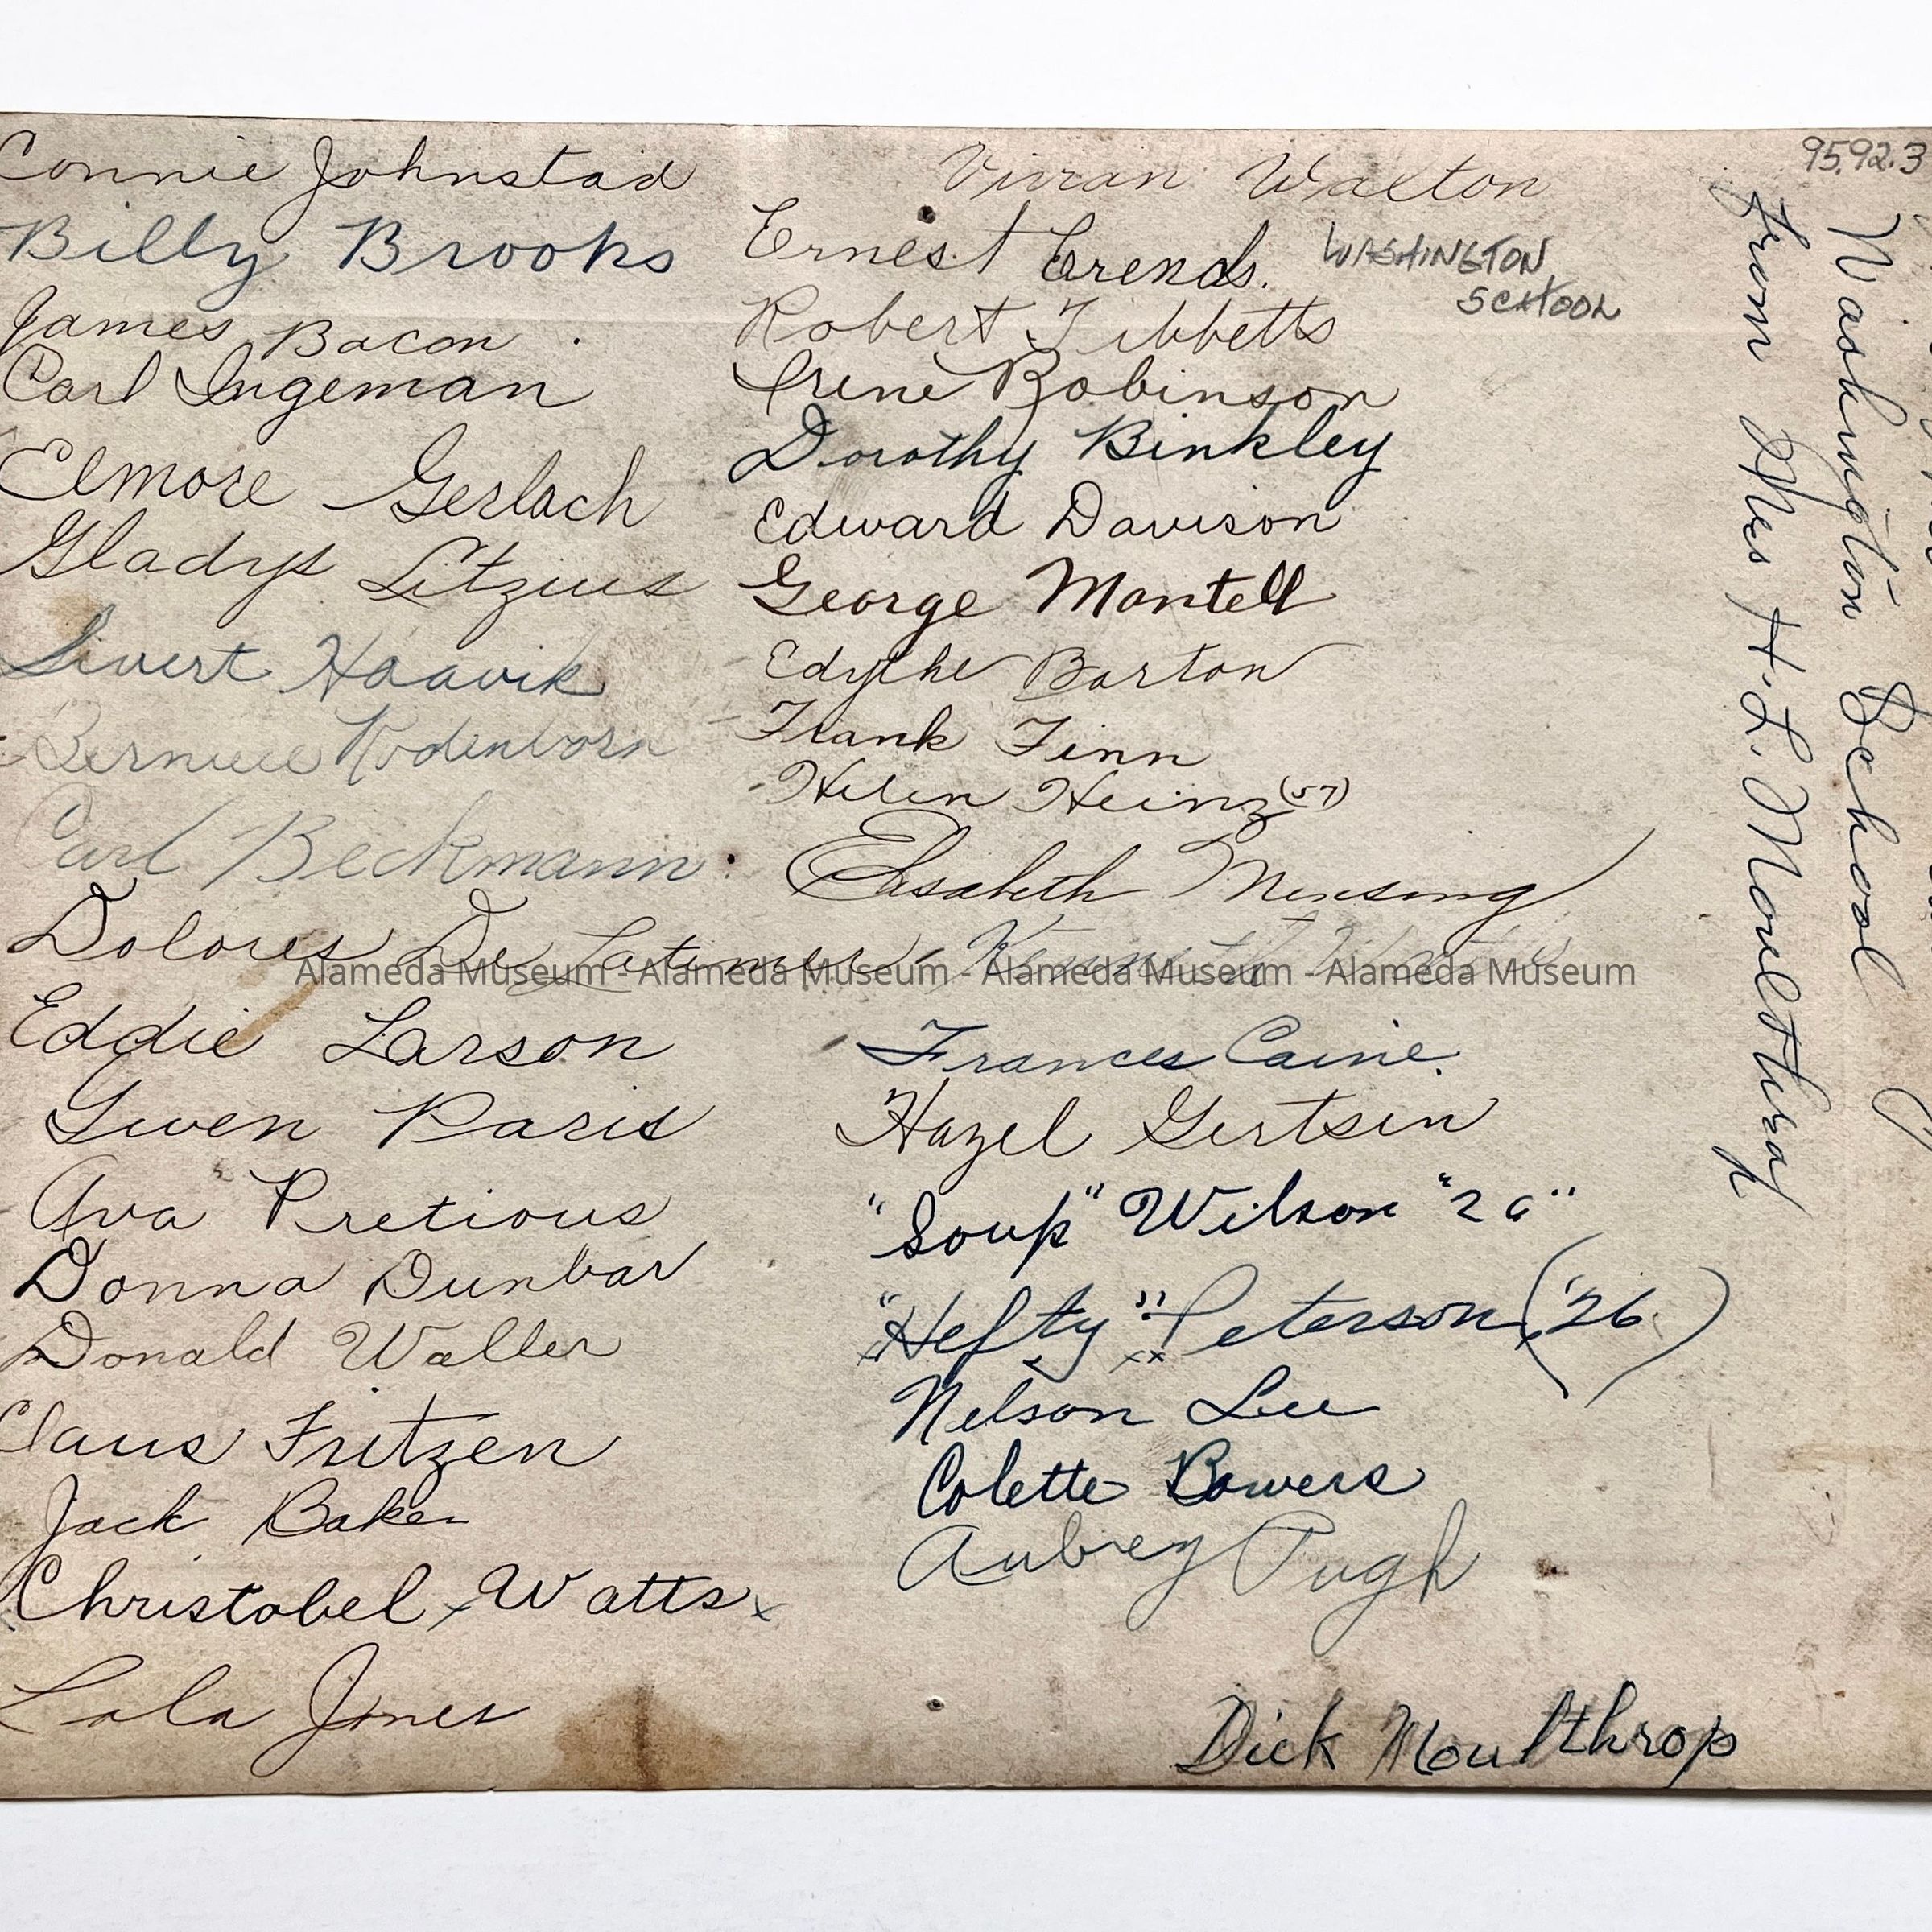 Connie Johnstad
Billy Brooks
James Bacon
Carl Ingeman
Elmore Gerlach
Gladys Litzius
Sivert Haavik
Bernice Rodenborn
Carl Beckmann
Dolores De Latimer
Eddie Larson
Gwen Paris
Ava Pretious
Donna Dunbar
Donald Waller
Claus Fritzen
Jack Baker
Christobel Watts
Lola Jones
Vivian Walton
Ernest Erends.
WASHINGTON
SCHOOL
Robert Tibbetts
Irene Robinson
Dorothy Binkley
Edward Davison
George Mantell
Edythe Barton
Frank Finn
Helen Heinz (57)
Elisabeth Mensing
Kenneth
Frances Caine.
Hazel Gertsen
"Soup" Wilson "26"
"Hefty" Peterson ('26)
Nelson Lee
Colette Bowers
Aubrey Pugh
Dick Moulthrop
95.92.3
Washington School
from Mrs H. L. Moulthrop
Alameda Museum - Alameda Museum - Alameda Museum - Alameda Museum